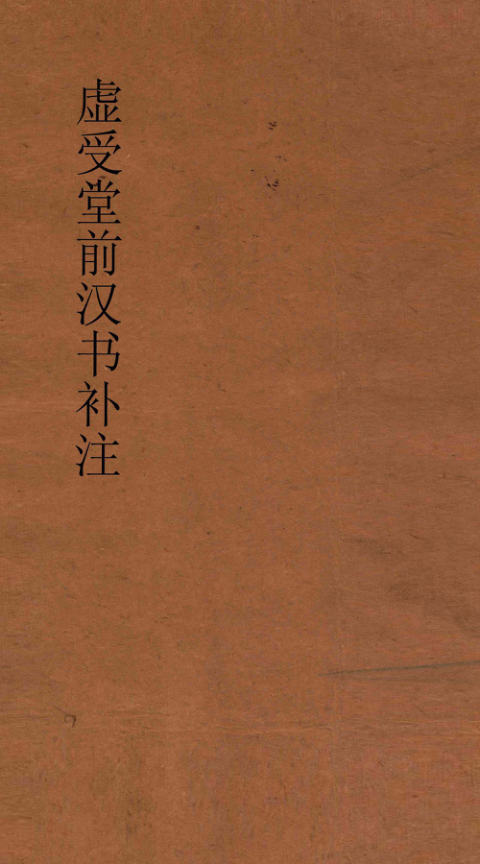 虚受堂前汉书补注